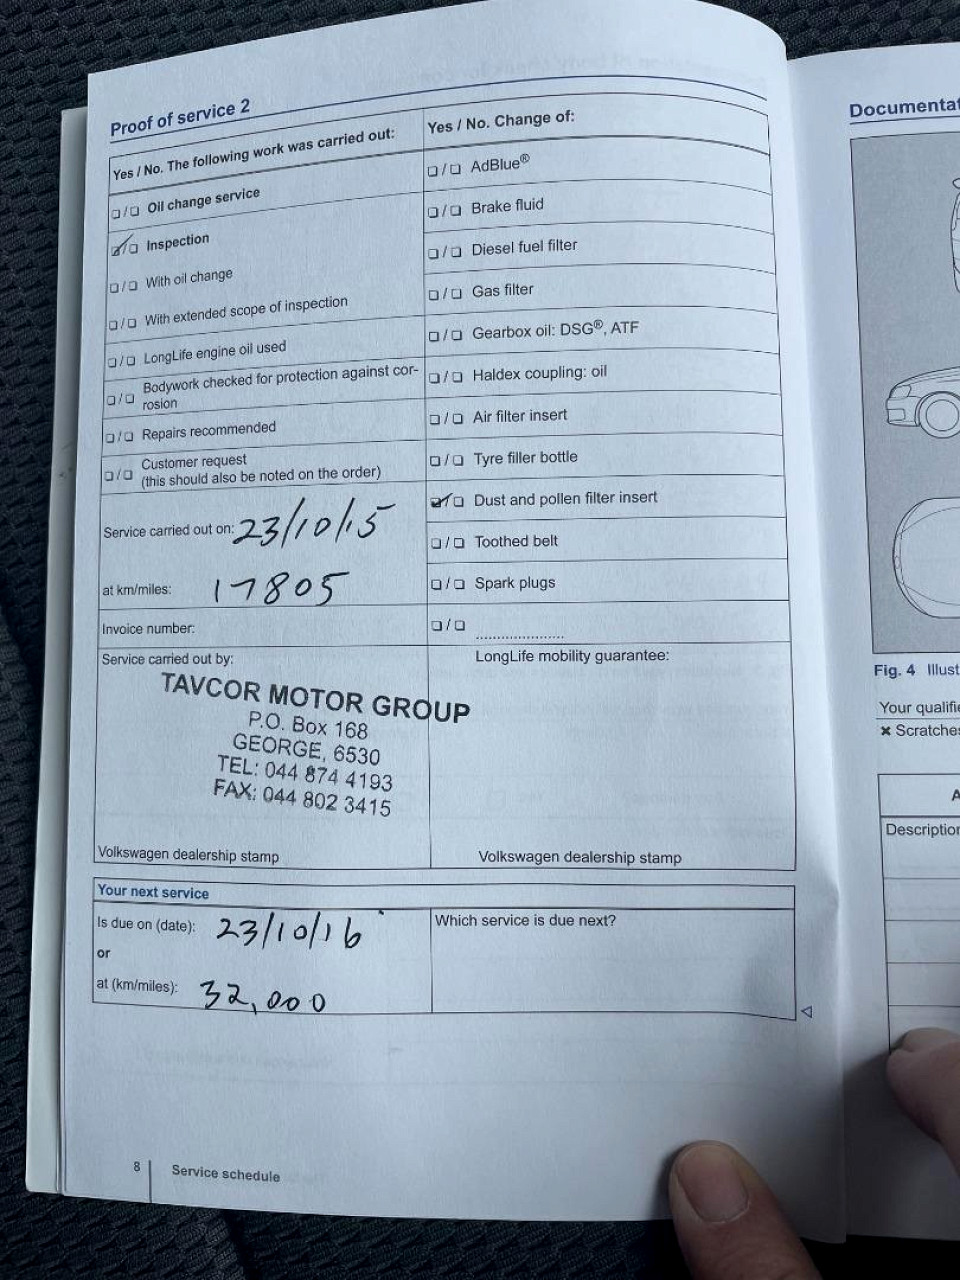 Proof of service 2
Yes / No. The following work was carried out:
❑/❑ Oil change service
☑/❑ Inspection
❑/❑ With oil change
❑/❑ With extended scope of inspection
❑/❑ LongLife engine oil used
❑/❑ Bodywork checked for protection against cor-
rosion
❑/❑ Repairs recommended
❑/❑ Customer request
(this should also be noted on the order)
Service carried out on: 23/10/15
at km/miles: 17805
Invoice number:
Service carried out by:
TAVCOR MOTOR GROUP
P.O. Box 168
GEORGE, 6530
TEL: 044 874 4193
FAX: 044 802 3415
Volkswagen dealership stamp
Yes / No. Change of:
❑/❑ AdBlue®
❑/❑ Brake fluid
❑/❑ Diesel fuel filter
❑/❑ Gas filter
❑/❑ Gearbox oil: DSG®, ATF
❑/❑ Haldex coupling: oil
❑/❑ Air filter insert
❑/❑ Tyre filler bottle
☑/❑ Dust and pollen filter insert
❑/❑ Toothed belt
❑/❑ Spark plugs
❑/❑ ......................
LongLife mobility guarantee:
Volkswagen dealership stamp
Your next service
Is due on (date): 23/10/16
or
at (km/miles): 32,000
Which service is due next?
8 Service schedule
Documentat
Fig. 4 Illust
Your qualifie
✖ Scratches
A
Description